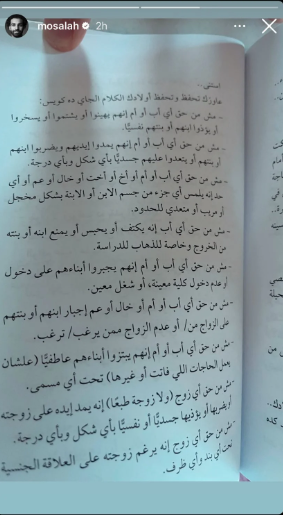 mosalah 2h
استنى..
عاوزك تحفظ وتحفظ أولادك الكلام الجاي ده كويس:
- مش من حق أي أب أو أم إنهم يهينوا أو يشتموا أو يسخروا
أو يؤذوا ابنهم أو بنتهم نفسيًّا.
- مش من حق أي أب أو أم إنهم يمدوا إيديهم ويضربوا ابنهم
أو بنتهم أو يتعدوا عليهم جسديًّا بأي شكل وبأي درجة.
- مش من حق أي أب أو أم أو أخ أو أخت أو خال أو عم أو أي
حد إنه يلمس أي جزء من جسم الابن أو الابنة بشكل مخجل
أو مريب أو متعدي للحدود.
- مش من حق أي أب إنه يكتف أو يحبس أو يمنع ابنه أو بنته
من الخروج وخاصة للذهاب للدراسة.
- مش من حق أي أب أو أم إنهم يجبروا أبناءهم على دخول
أو عدم دخول كلية معينة، أو شغل معين.
- مش من حق أي أب أو أم أو خال أو عم إجبار ابنهم أو بنتهم
على الزواج من/ أو عدم الزواج ممن يرغب/ ترغب.
- مش من حق أي أب أو أم إنهم يبتزوا أبناءهم عاطفيًّا (علشان
يعمل الحاجات اللي فاتت أو غيرها) تحت أي مسمى.
- مش من حق أي زوج (ولا زوجة طبعًا) إنه يمد إيده على زوجته
أو يضربها أو يؤذيها جسديًّا أو نفسيًّا بأي شكل وبأي درجة.
- مش من حق أي زوج إنه يرغم زوجته على العلاقة الجنسية
تحت أي بند وأي ظرف.